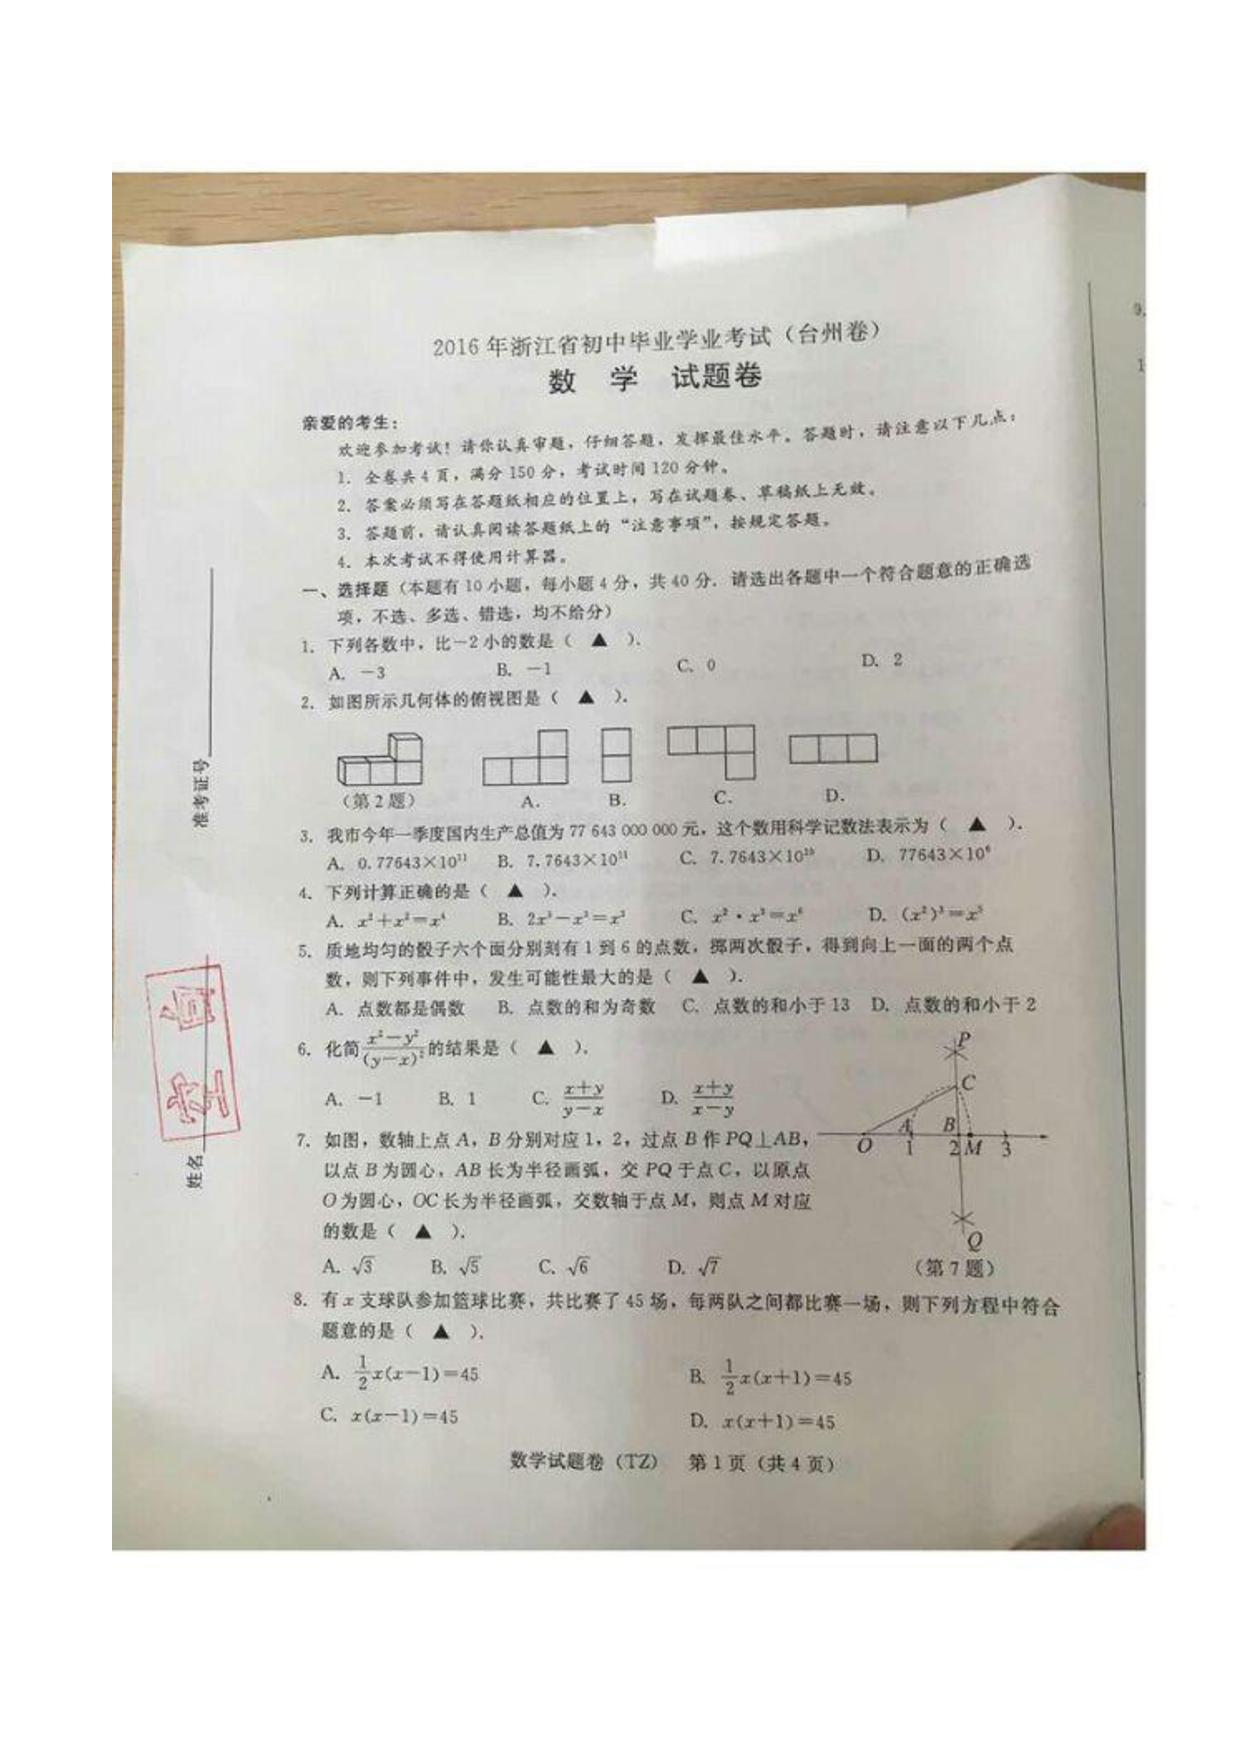 2016年浙江省初中毕业学业考试（台州卷）
数 学 试题卷
亲爱的考生：
欢迎参加考试！请你认真审题，仔细答题，发挥最佳水平。答题时，请注意以下几点：
1. 全卷共4页，满分150分，考试时间120分钟。
2. 答案必须写在答题纸相应的位置上，写在试题卷、草稿纸上无效。
3. 答题前，请认真阅读答题纸上的“注意事项”，按规定答题。
4. 本次考试不得使用计算器。
一、选择题（本题有10小题，每小题4分，共40分．请选出各题中一个符合题意的正确选
项，不选、多选、错选，均不给分）
1. 下列各数中，比－2小的数是（ ▲ ）．
A. －3 B. －1 C. 0 D. 2
2. 如图所示几何体的俯视图是（ ▲ ）．
（第2题） A. B. C. D.
3. 我市今年一季度国内生产总值为77 643 000 000元，这个数用科学记数法表示为（ ▲ ）．
A. 0.77643×10¹¹ B. 7.7643×10¹¹ C. 7.7643×10¹⁰ D. 77643×10⁶
4. 下列计算正确的是（ ▲ ）．
A. x²＋x²＝x⁴ B. 2x³－x³＝x³ C. x²·x³＝x⁶ D. (x²)³＝x⁵
5. 质地均匀的骰子六个面分别刻有1到6的点数，掷两次骰子，得到向上一面的两个点
数，则下列事件中，发生可能性最大的是（ ▲ ）．
A. 点数都是偶数 B. 点数的和为奇数 C. 点数的和小于13 D. 点数的和小于2
6. 化简(x²－y²)/(y－x)²的结果是（ ▲ ）．
A. －1 B. 1 C. (x＋y)/(y－x) D. (x＋y)/(x－y)
7. 如图，数轴上点A，B分别对应1，2，过点B作PQ⊥AB，
以点B为圆心，AB长为半径画弧，交PQ于点C，以原点
O为圆心，OC长为半径画弧，交数轴于点M，则点M对应
的数是（ ▲ ）．
A. √3 B. √5 C. √6 D. √7
P
C
A B
O 1 2 M 3
Q
（第7题）
8. 有x支球队参加篮球比赛，共比赛了45场，每两队之间都比赛一场，则下列方程中符合
题意的是（ ▲ ）．
A. ½x(x－1)＝45 B. ½x(x＋1)＝45
C. x(x－1)＝45 D. x(x＋1)＝45
数学试题卷（TZ） 第1页（共4页）
准考证号
姓名
9.
1